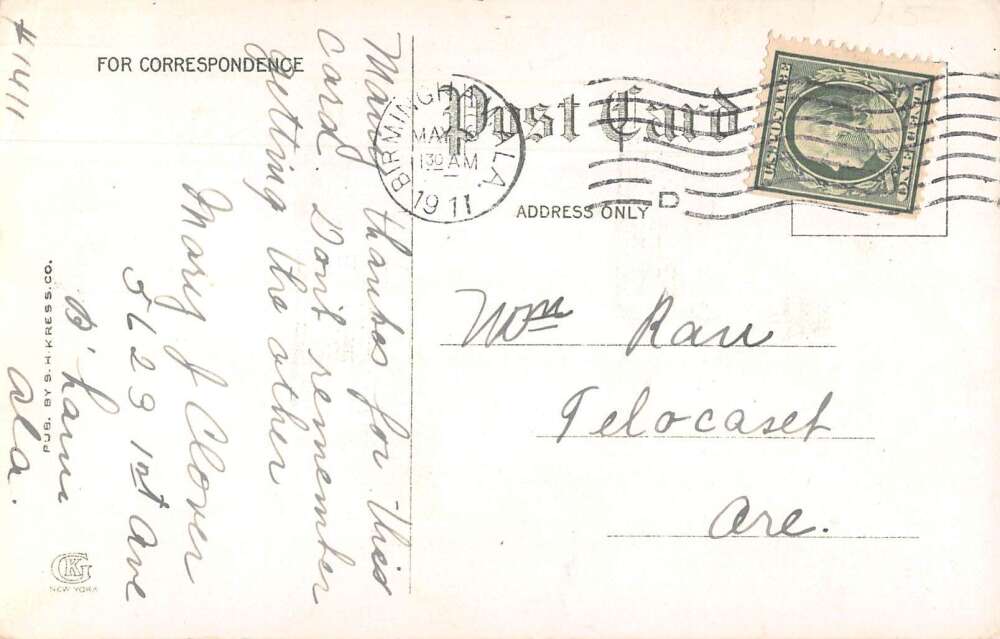 #1411
FOR CORRESPONDENCE
Post Card
ADDRESS ONLY
BIRMINGHAM, ALA.
MAY
1 30 AM
1911
D
U.S. POSTAGE
ONE CENT
Many thanks for this
card. Don't remember
getting the other
Mary J Clover
5623 1st Ave
B'ham
Ala.
Wm Rau
Telocaset
Ore.
PUB. BY S.H. KRESS & CO.
GK
NEW YORK